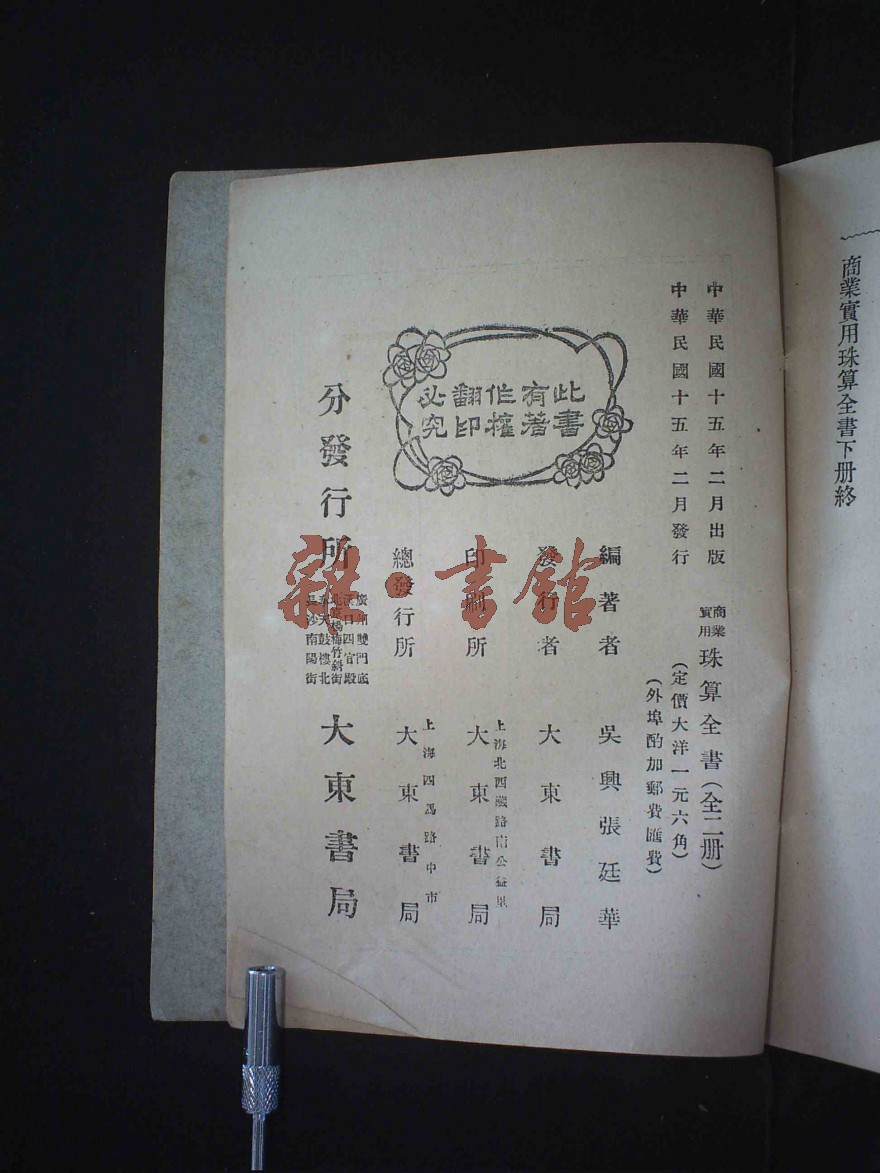 商業實用珠算全書下册終
中華民國十五年二月出版
中華民國十五年二月發行
商業實用珠算全書(全二册)
(定價大洋一元六角)
(外埠酌加郵費匯費)
此書
有著
作權
翻印
必究
編著者 吳興張廷華
發行者 大東書局
印刷所 上海北西藏路南公益里 大東書局
總發行所 上海四馬路中市 大東書局
分發行所
廣州雙門底
漢口四官殿
北京楊梅竹斜街
奉天鼓樓北
長沙南陽街
大東書局
雜·書館